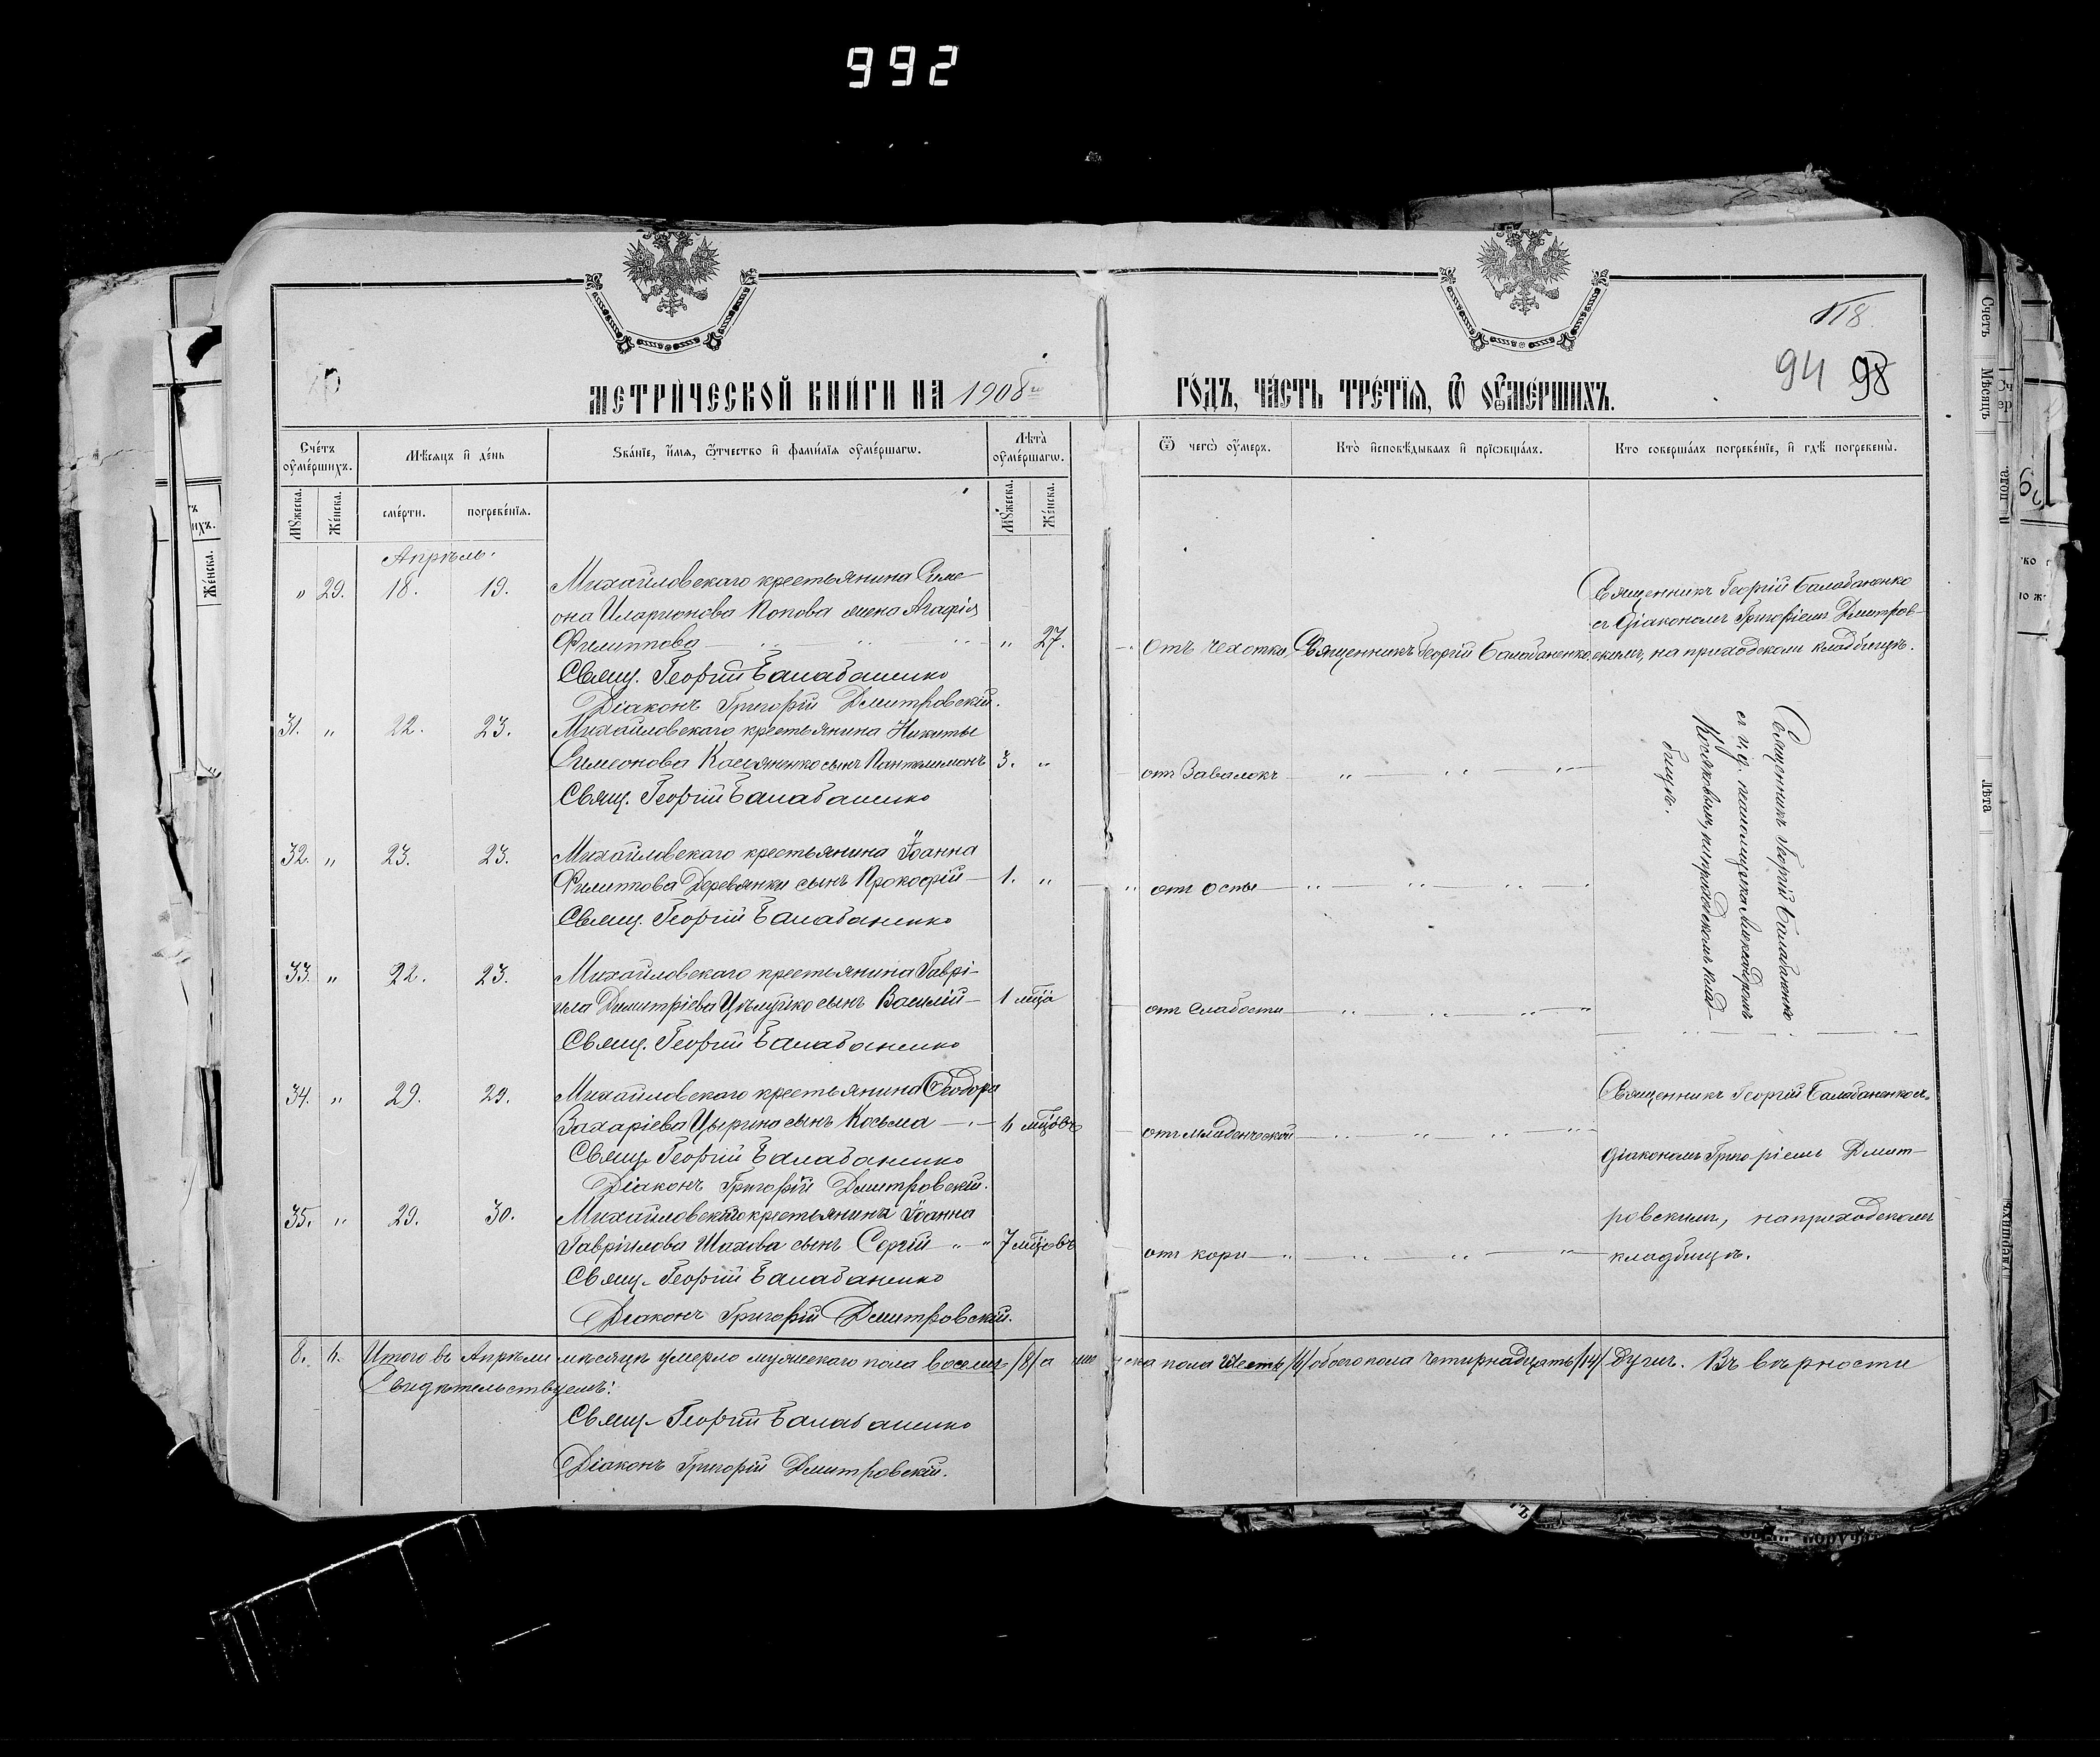 992
118
94 98
МЕТРИЧЕСКОЙ КНИГИ НА 1908й ГОДЪ, ЧАСТЬ ТРЕТІЯ, Ѿ ОУМЕРШИХЪ.
Счетъ оумершихъ. Мѣсяцъ и день Званіе, имя, отчество и фамилія оумершагѡ. Лѣта оумершагѡ. Ѿ чегѡ оумеръ. Кто исповѣдывалъ и пріобщалъ. Кто совершалъ погребеніе, и гдѣ погребены.
Мужеска. Женска. смерти. погребенія. Мужеска. Женска.
Апрѣль.
„ 29. 18. 19. Михайловскаго крестьянина Симе-
она Иларионова Попова жена Агафія
Филиппова „ 27. отъ чахотки Священникъ Георгій Балабаненко
Священникъ Георгій Балабаненко
съ діакономъ Григоріемъ Дмитров-
скимъ, на приходскомъ кладбищѣ.
Свящ. Георгій Балабаненко
Діаконъ Григорій Дмитровскій.
31. „ 22. 23. Михайловскаго крестьянина Никиты
Симеонова Касьяненко сынъ Пантелимонъ 3. „ отъ Завалокъ
Свящ. Георгій Балабаненко
32. „ 23. 23. Михайловскаго крестьянина Іоанна
Филиппова Деревянки сынъ Прокофій 1. „ отъ оспы
Свящ. Георгій Балабаненко
33. „ 22. 23. Михайловскаго крестьянина Гаврі-
ила Димитріева Цѣлуйко сынъ Василій 1 мца отъ слабости
Свящ. Георгій Балабаненко
Священникъ Георгій Балабаненко
съ и. д. псаломщика Александромъ
на приходскомъ клад-
бищѣ.
34. „ 29. 29. Михайловскаго крестьянина Ѳеодора
Захаріева Цырина сынъ Косьма 6 мцовъ отъ младенческой
Свящ. Георгій Балабаненко
Діаконъ Григорій Дмитровскій.
35. „ 29. 30. Михайловскаго крестьянина Іоанна
Гавріилова Шахова сынъ Сергій 7 мцовъ отъ кори
Свящ. Георгій Балабаненко
Діаконъ Григорій Дмитровскій.
Священникъ Георгій Балабаненко съ
діакономъ Григоріемъ Дмит-
ровскимъ, на приходскомъ
кладбищѣ.
8. 6. Итого въ Апрѣли мѣсяцѣ умерло мужескаго пола восемь /8/ а женска пола шесть /6/ обоего пола четырнадцать /14/ душъ. Въ вѣрности
Свидѣтельствуемъ:
Свящ. Георгій Балабаненко
Діаконъ Григорій Дмитровскій.